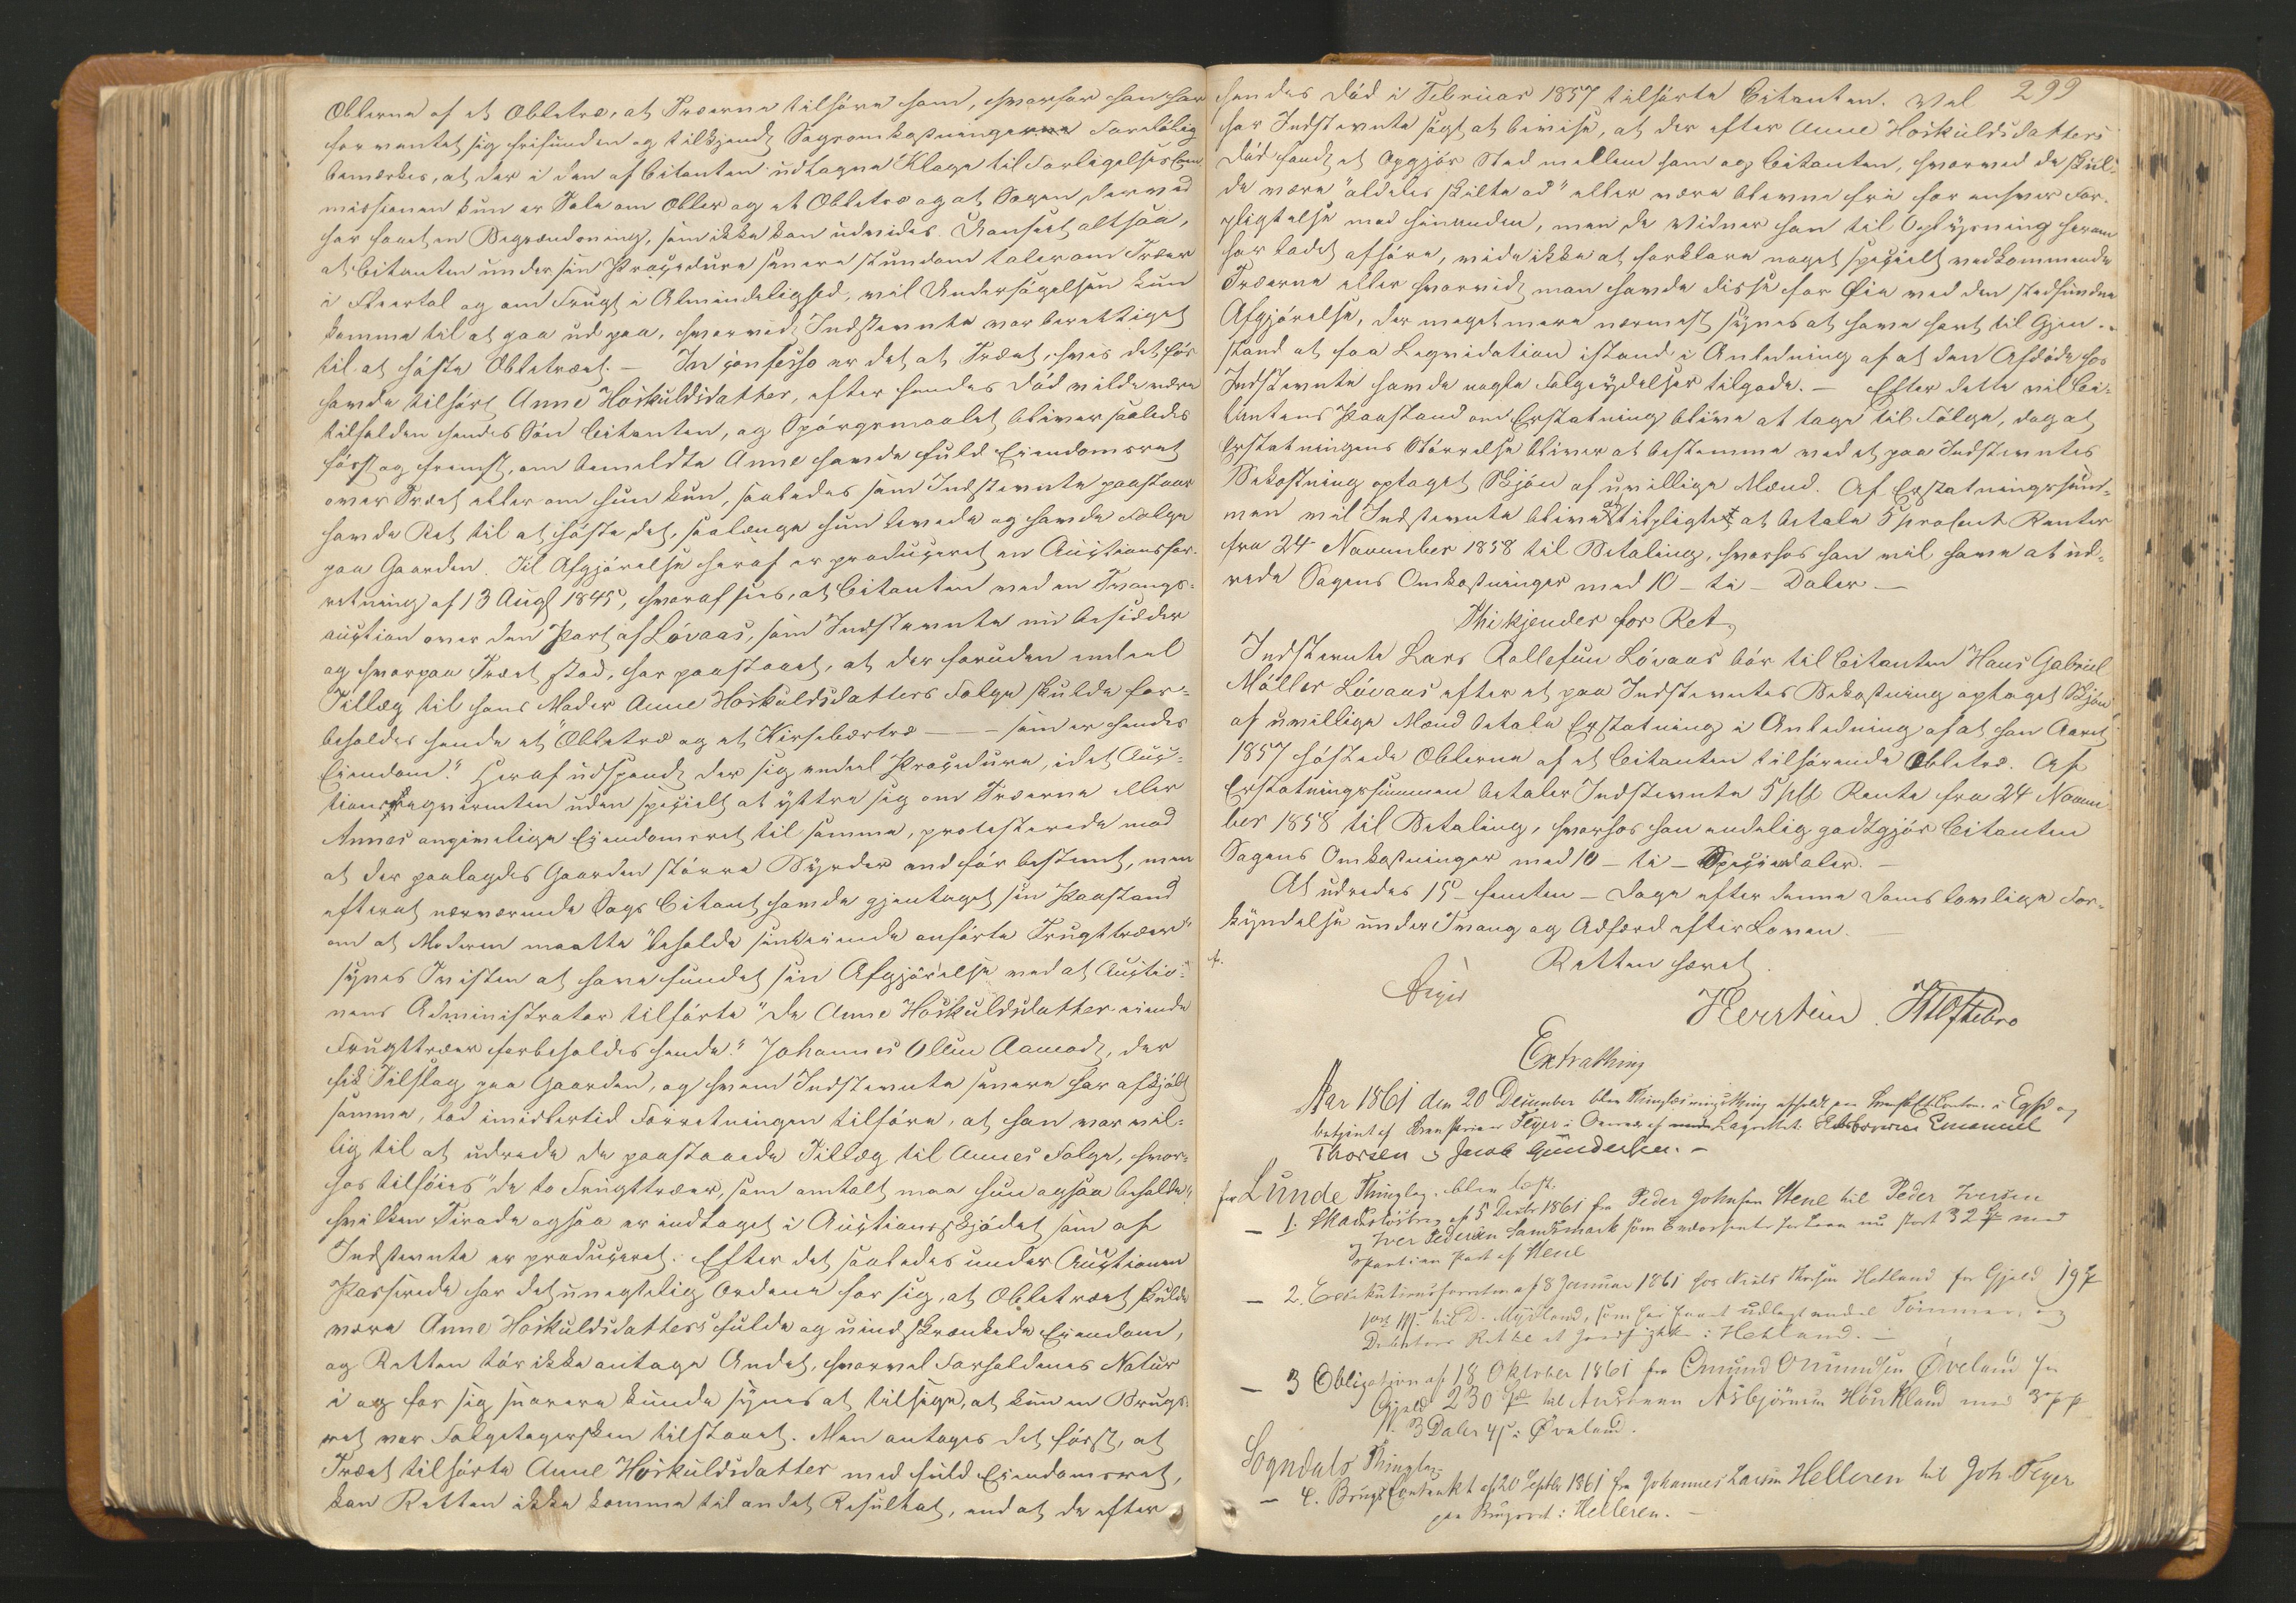 Æblerne af et Æbletræ, at Træerne tilhöre ham, hvorfor han har
forventet sig frifunden og tilkjendt Sagsomkostningerne Foreløbig
bemærkes, at der i den af Citanten udtagne Klage til Forligelsescom-
missionen kun er Tale om Æbler og et Æbletræ og at Sagen derved
har faaet en Begrændsning, som ikke kan udvides. Uanseet altsaa,
at Citanten under sin Proçedure senere stundom taler om Træer
i Fleertal og om Frugt i Almindelighed, vil Undersögelsen kun
komme til at gaa ud paa, hvorvidt Indstevnte var berettiget
til at höste Æbletræet. – In confesso er det at Træet, hvis det før
havde tilhört Anne Höskuldsdatter, efter hendes Död vilde være
tilfalden hendes Sön Citanten, og Spörgsmaalet bliver saaledes
först og fremst, om bemeldte Anne havde fuld Eiendomsret
over Træet eller om hun kun, saaledes som Indstevnte paastaar
havde Ret til at höste det, saalænge hun levede og havde Folge
paa Gaarden. Til Afgjörelse heraf er produçeret en Auçtionsfor-
retning af 13 Augt 1845, hvoraf sees, at Citanten ved en Tvangs-
auçtion over den Part af Lövaas, som Indstevnte nu besidder
og hvorpaa Træet stod, har paastaaet, at der foruden endeel
Tillæg til hans Moder Anne Höskuldsdatters Folge skulde for-
beholdes hende et "Æbletræ og et Kirsebærtræ – – – som er hendes
Eiendom." Heraf udspandt der sig endeel Proçedure, idet Auç-
tionsreqvirenten uden speçielt at yttre sig om Træerne eller
Annes angivelige Eiendomsret til samme, protesterede mod
at der paalagdes Gaarden större Byrder end för bestemt, men
efterat nærværende Sags Citant havde gjentaget sin Paastand
om at Moderen maatte "beholde sine eiende anförte Frugttræer"
synes Tvisten at have fundet sin Afgjörelse ved at Auçtio-
nens Administrator tilförte "De Anne Höskuldsdatter eiende
Frugttræer forbeholdes hende." Johannes Olsen Aamodt, der
fik Tilslag paa Gaarden, og hvem Indstevnte senere har afkjöbt
samme, lod imidlertid Forretningen tilföre, at han var vil-
lig til at udrede de paastaaede Tillæg til Annes Folge, hvor-
hos tilföies "de to Frugttræer, som omtalt maa hun ogsaa beholde"
hvilken Tirade ogsaa er indtaget i Auçtionsskjödet som af
Indstevnte er produçeret. Efter det saaledes under Auçtionen
Passerede har det unegtelig Ordene for sig, at Æbletræet skulde
være Anne Höskuldsdatters fulde og uindskrænkede Eiendom,
og Retten tör ikke antage Andet, hvorvel Forholdenes Natur
i og for sig snarere kunde synes at tilsige, at kun en Brugs-
ret var Folgetagersken tilstaaet. Men antages det först, at
Træet tilhörte Anne Höskuldsdatter med fuld Eiendomsret,
kan Retten ikke komme til andet Resultat, end at de efter
299
hendes Död i Februar 1857 tilhörte Citanten. Vel
har Indstevnte sögt at bevise, at der efter Anne Höskuldsdatters
Död fandt et Opgjör Sted mellem ham og Citanten, hvorved de skul-
de være "aldeles skilte ad" eller være blevne fri for enhver For-
pligtelse mod hinanden, men de Vidner han til Oplysning herom
har ladet afhöre, vide ikke at forklare noget speçielt vedkommende
Træerne eller hvorvidt man havde disse for Øie ved den stedfundne
Afgjörelse, der meget mere nærmest synes at have havt til Gjen-
stand at faa Liqvidation istand i Anledning af at den Afdöde hos
Indstevnte havde nogle Folgeydelser tilgode. – Efter dette vil Ci-
tantens Paastand om Erstatning blive at tage til Fölge, dog at
Erstatningens Störrelse bliver at bestemme ved et paa Indstevntes
Bekostning optaget Skjön af uvillige Mænd. Af Erstatningssum-
men vil Indstevnte blive at tilpligte at betale 5 prosent Renter
fra 24 November 1858 til Betaling, hvorhos han vil have at ud-
rede Sagens Omkostninger med 10 – ti – Daler. –
Thi kjendes for Ret,
Indstevnte Lars Tollefsen Lövaas bör til Citanten Hans Gabriel
Möller Lövaas efter et paa Indstevntes Bekostning optaget Skjön
af uvillige Mænd betale Erstatning i Anledning af at han Aaret
1857 höstede Æblerne af et Citanten tilhörende Æbletræ. Af
Erstatningssummen betaler Indstevnte 5 pCt Rente fra 24 Novem-
ber 1858 til Betaling, hvorhos han endelig godtgjör Citanten
Sagens Omkostninger med 10 – ti – Speçiedaler. –
At udredes 15 – femten – Dage efter denne Doms lovlige For-
kyndelse under Tvang og Adfærd efter Loven. –
Retten hævet.
Feyer
Extrathing
Aar 1861 den 20 December blev Thinglæsningsthing afholdt paa i Egsd og
betjent af Feyer i Overvær af Lagrettet: Emanuel
Thorsen & Jacob Gundersen. –
for Lunde Thinglag. blev læst.
– 1. af 5 Decbr 1861 fra Peder Johnsen Stene til Peder Iversen
og Iver Pedersen Landsmark som nu stort 32 med
Part af Stene
– 2. Executionsforretn af 8 Januar 1861 hos Niels Hetland for Gjeld 19
til D. Mydland, som har faaet udlagt endeel Tømmer, og
Debitors Rette et i Hetland. –
– 3 Obligation af 18 Oktober 1861 fra Omund Omundsen Öveland for
Gjeld 230 til Asbjörnsen Haukland med 3 pp
3 Daler i Öveland.
Sogndals Thinglag.
– 4. BrugsContrakt af 20 Septbr 1861 fra Johannes Larsen Helleren til Joh. Feyer
paa Brugsret i Helleren. –